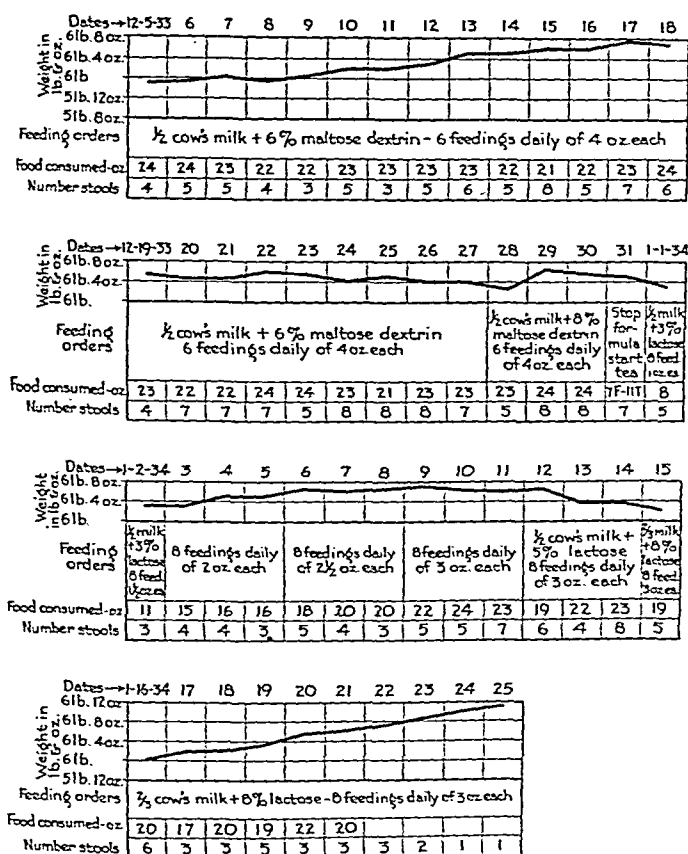 Dates→12-5-33 6 7 8 9 10 11 12 13 14 15 16 17 18
Weight in lb. & oz.
6lb. 8oz.
6lb. 4oz.
6lb
5lb. 12oz.
5lb. 8oz.
Feeding orders ½ cow's milk + 6% maltose dextrin - 6 feedings daily of 4 oz. each
Food consumed-oz 24 24 23 22 22 23 23 22 23 22 21 22 23 24
Number stools 4 5 5 4 3 5 3 5 6 5 8 5 7 6
Dates→12-19-33 20 21 22 23 24 25 26 27 28 29 30 31 1-1-34
Weight in lb. & oz.
6lb. 8oz.
6lb. 4oz.
6lb.
Feeding orders
½ cow's milk + 6% maltose dextrin
6 feedings daily of 4oz. each
½ cow's milk + 8%
maltose dextrin
6 feedings daily
of 4oz. each
Stop
for-
mula
start
tea
½ milk
+3%
lactose
8 feed.
1oz ea
Food consumed-oz 23 22 22 24 24 23 21 23 23 23 24 24 7F-11T 8
Number stools 4 7 7 7 5 8 8 8 7 5 8 8 7 5
Dates→1-2-34 3 4 5 6 7 8 9 10 11 12 13 14 15
Weight in lb & oz.
6lb. 8oz.
6lb. 4oz.
6lb.
Feeding orders
½ milk
+3%
lactose
8 feed
1½oz ea
8 feedings daily
of 2 oz. each
8 feedings daily
of 2½ oz. each
8 feedings daily
of 3 oz. each
½ cow's milk +
5% lactose
8 feedings daily
of 3 oz. each
⅔ milk
+8%
lactose
8 feed
3oz ea
Food consumed-oz 11 15 16 16 18 20 20 22 24 23 19 22 23 19
Number stools 3 4 4 3 5 4 3 5 5 7 6 4 8 5
Dates→1-16-34 17 18 19 20 21 22 23 24 25
Weight in lb. & oz.
6lb. 12oz
6lb. 8oz.
6lb. 4oz.
6lb.
5lb. 12oz
Feeding orders ⅔ cow's milk + 8% lactose - 8 feedings daily of 3 oz each
Food consumed-oz 20 17 20 19 22 20
Number stools 6 3 3 5 3 3 3 2 1 1